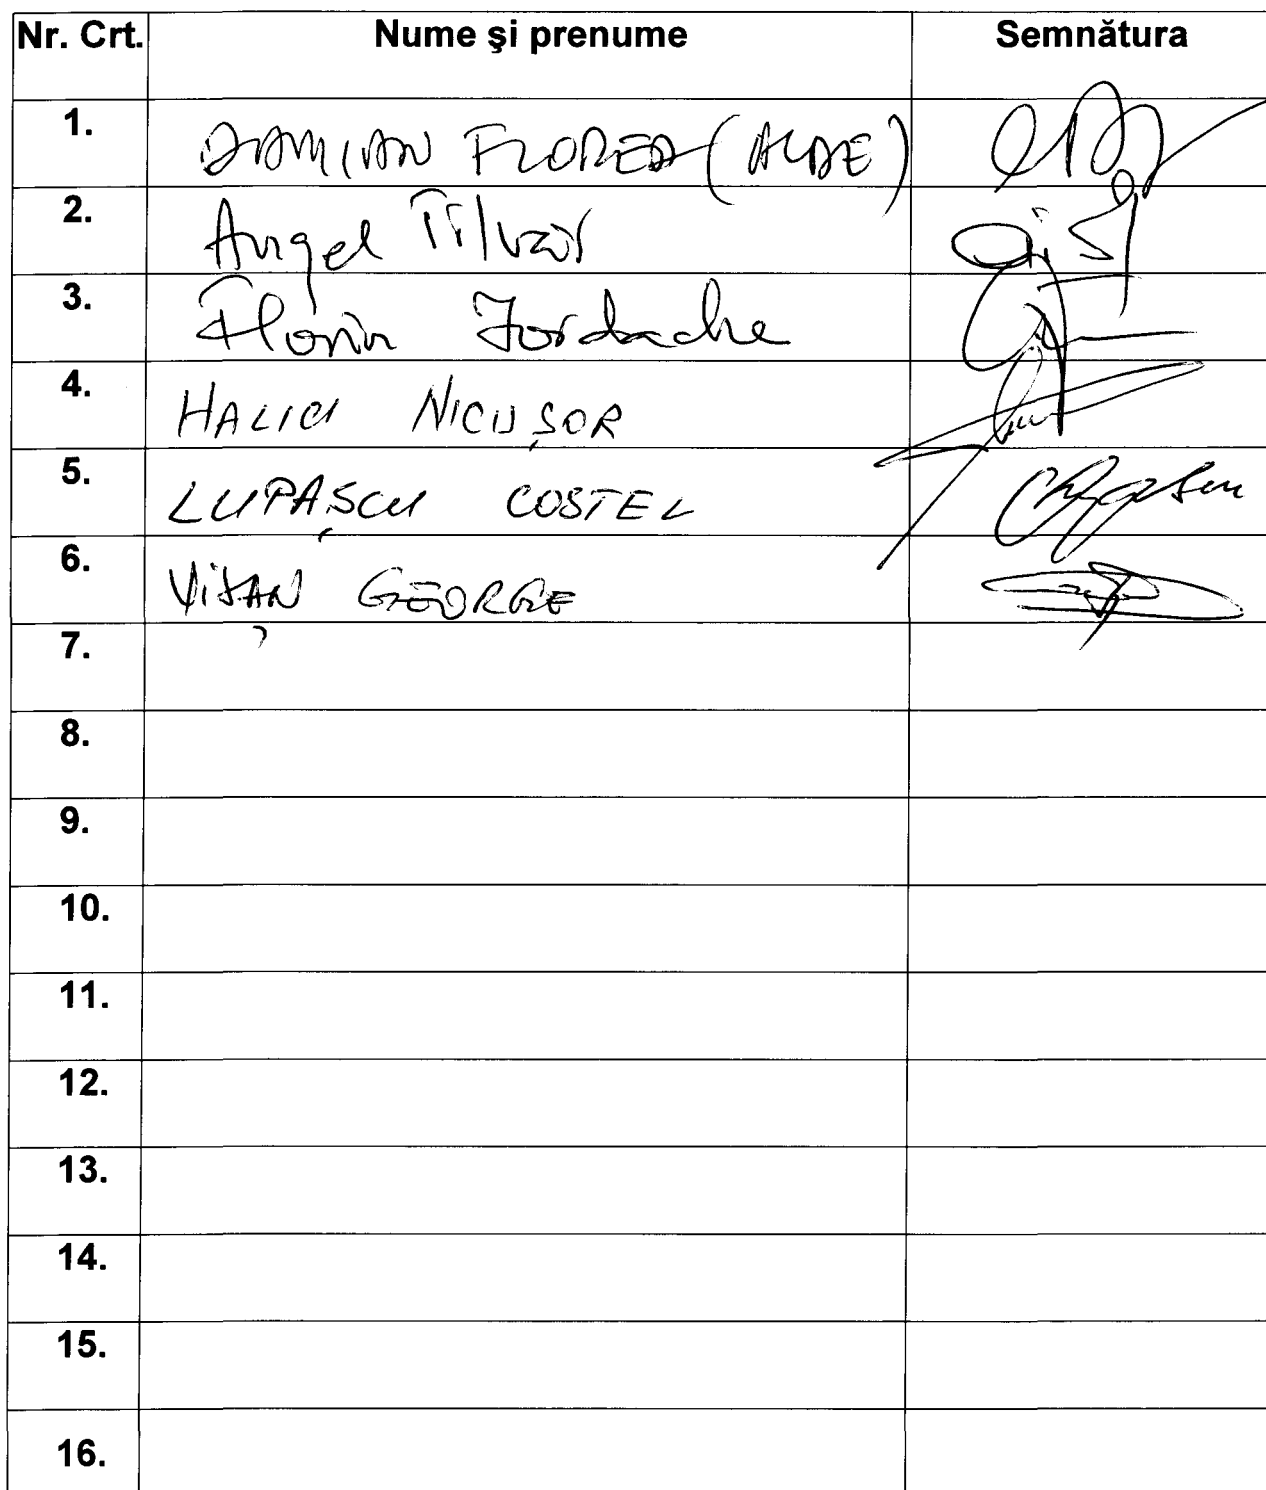 Nr. Crt. Nume şi prenume Semnătura
1. DAMIAN FLOREA (ALDE)
2. Angel Tîlvăr
3. Florin Iordache
4. HALICI NICUŞOR
5. LUPAȘCU COSTEL
6. VIȘAN GEORGE
7.
8.
9.
10.
11.
12.
13.
14.
15.
16.